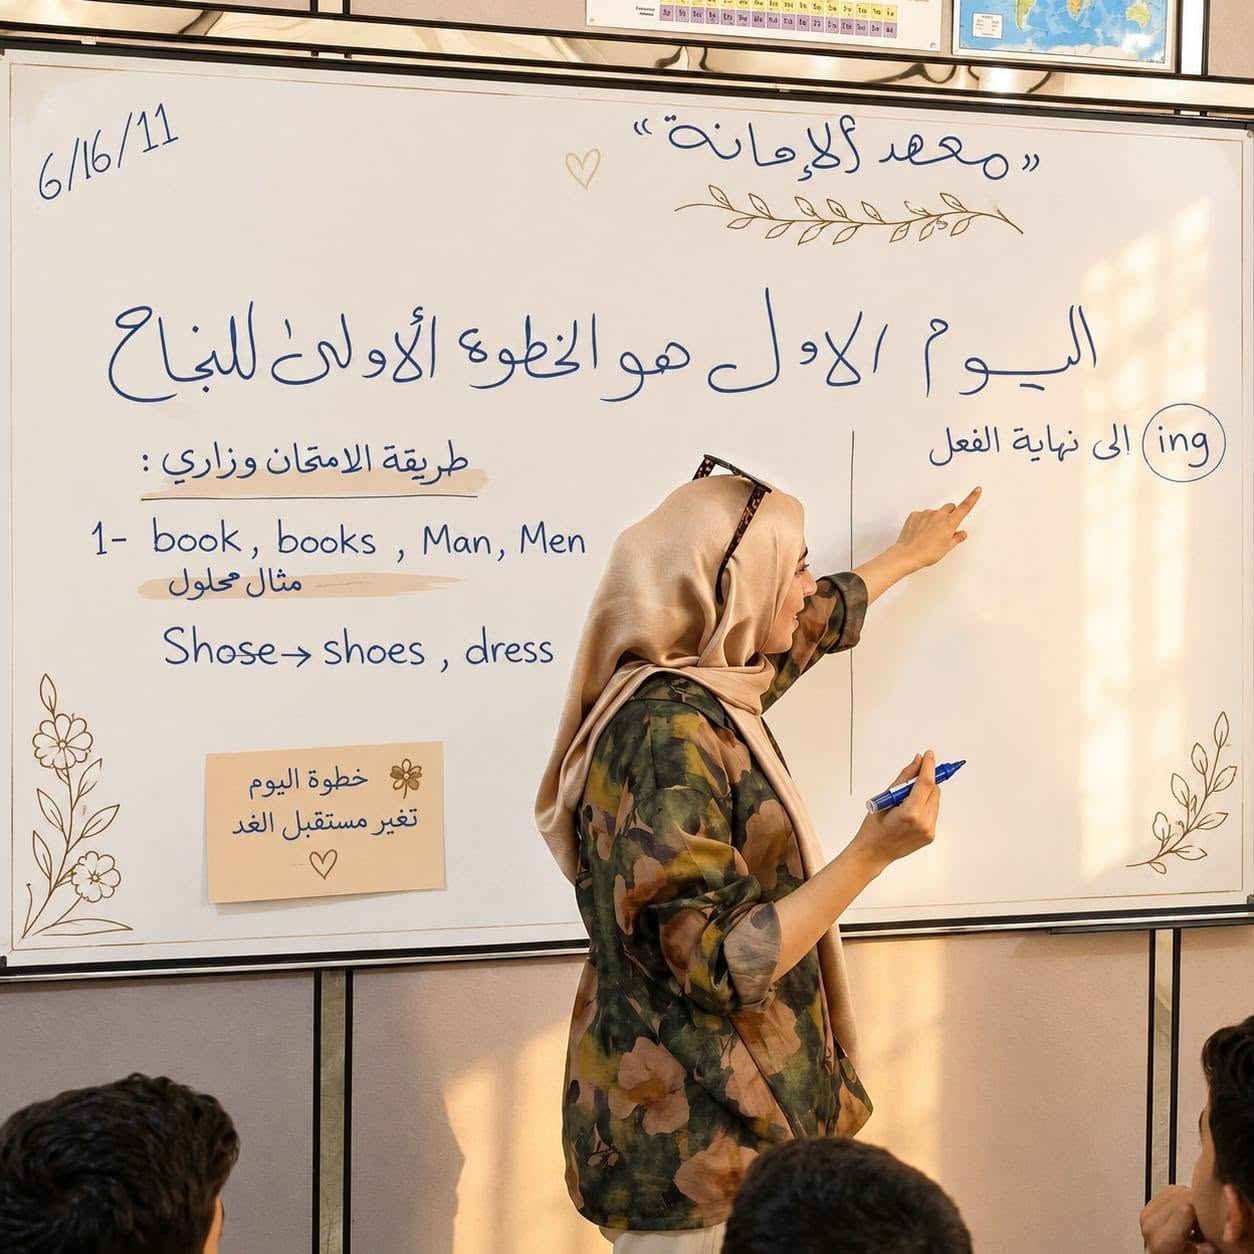 6/16/11
"معهد الإمانة"
اليوم الاول هو الخطوة الأولى للنجاح
ing الى نهاية الفعل
طريقة الامتحان وزاري :
1- book, books , Man, Men
مثال محلول
Shose→ shoes , dress
خطوة اليوم
تغير مستقبل الغد